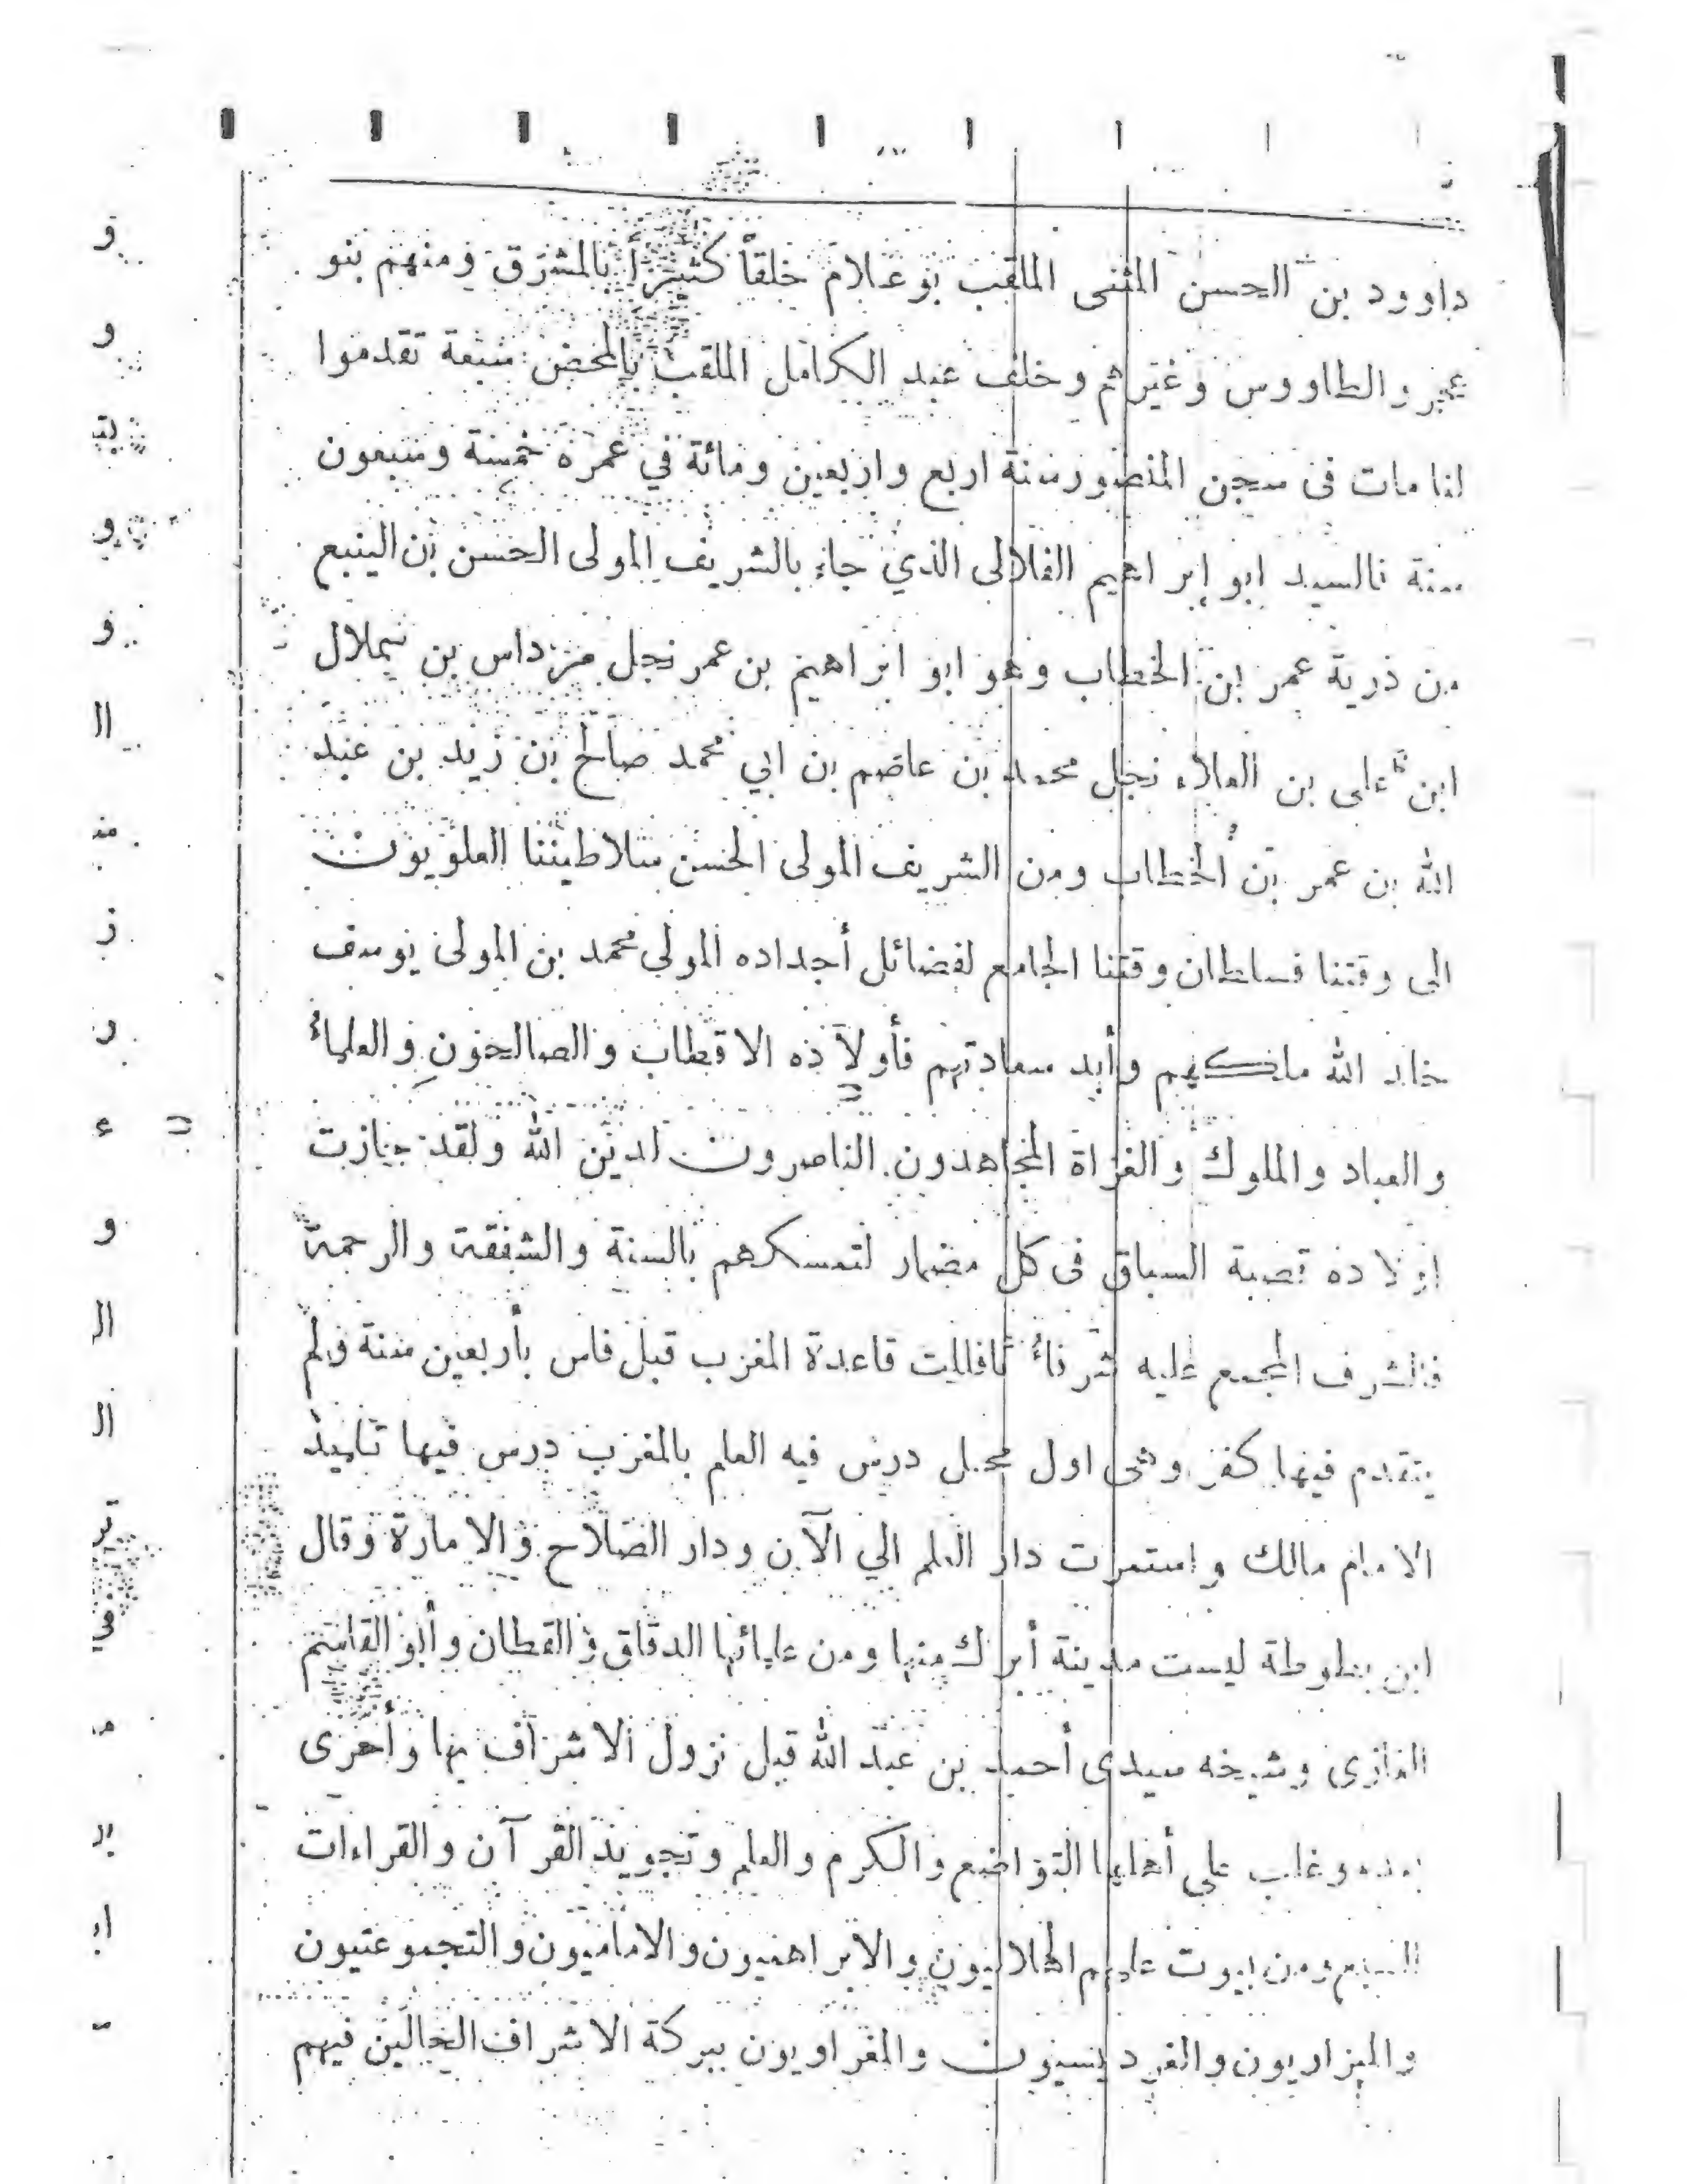 داوود بن الحسن المثنى الملقب بوعلام خلقاً كثيراً بالمشرق ومنهم بنو
عمير والطاووس وغيرهم وخلف عبد الكامل الملقب بالمحض سبعة تقدموا
لنا مات فى سجن المنصور سنة اربع واربعين ومائة في عمره خمسة وسبعون
سنة فالسيد ابو إبراهيم الفلالى الذي جاء بالشريف المولى الحسن بن الينبع
من ذرية عمر بن الخطاب وهو ابو ابراهيم بن عمر نجل مرداس بن تيملال
ابن على بن العلاء نجل محمد بن عاصم بن ابي محمد صالح بن زيد بن عبد
الله بن عمر بن الخطاب ومن الشريف المولى الحسن سلاطيننا العلويون
الى وقتنا فسلطان وقتنا الجامع لفضائل أجداده المولي محمد بن المولى يوسف
خلد الله ملكهم وأبد سعادتهم فأولاده الاقطاب والصالحون والعلماء
والعباد والملوك والغزاة المجاهدون الناصرون لدين الله ولقد جازت
اولاده قصبة السباق فى كل مضمار لتمسكهم بالسنة والشفقة والرحمة
فالشرف المجمع عليه شرفاء تافلالت قاعدة المغرب قبل فاس بأربعين سنة ولم
يتقدم فيها كفر وهى اول محل درس فيه العلم بالمغرب درس فيها تلميذ
الامام مالك واستمرت دار العلم الي الآن ودار الصلاح والامارة وقال
ابن بطوطة ليست مدينة أبرك منها ومن علمائها الدقاق والقطان وأبو القاسم
الغازى وشيخه سيدى أحمد بن عبد الله قبل نزول الاشراف بها وأحرى
بعده وغلب على أهلها التواضع والكرم والعلم وتجويد القرآن والقراءات
السبع ومن بيوت علمهم الهلاليون والابراهميون والاماميون والتجموعتيون
والميزاريون والفرديسيون والمغراويون ببركة الاشراف الحالين فيهم